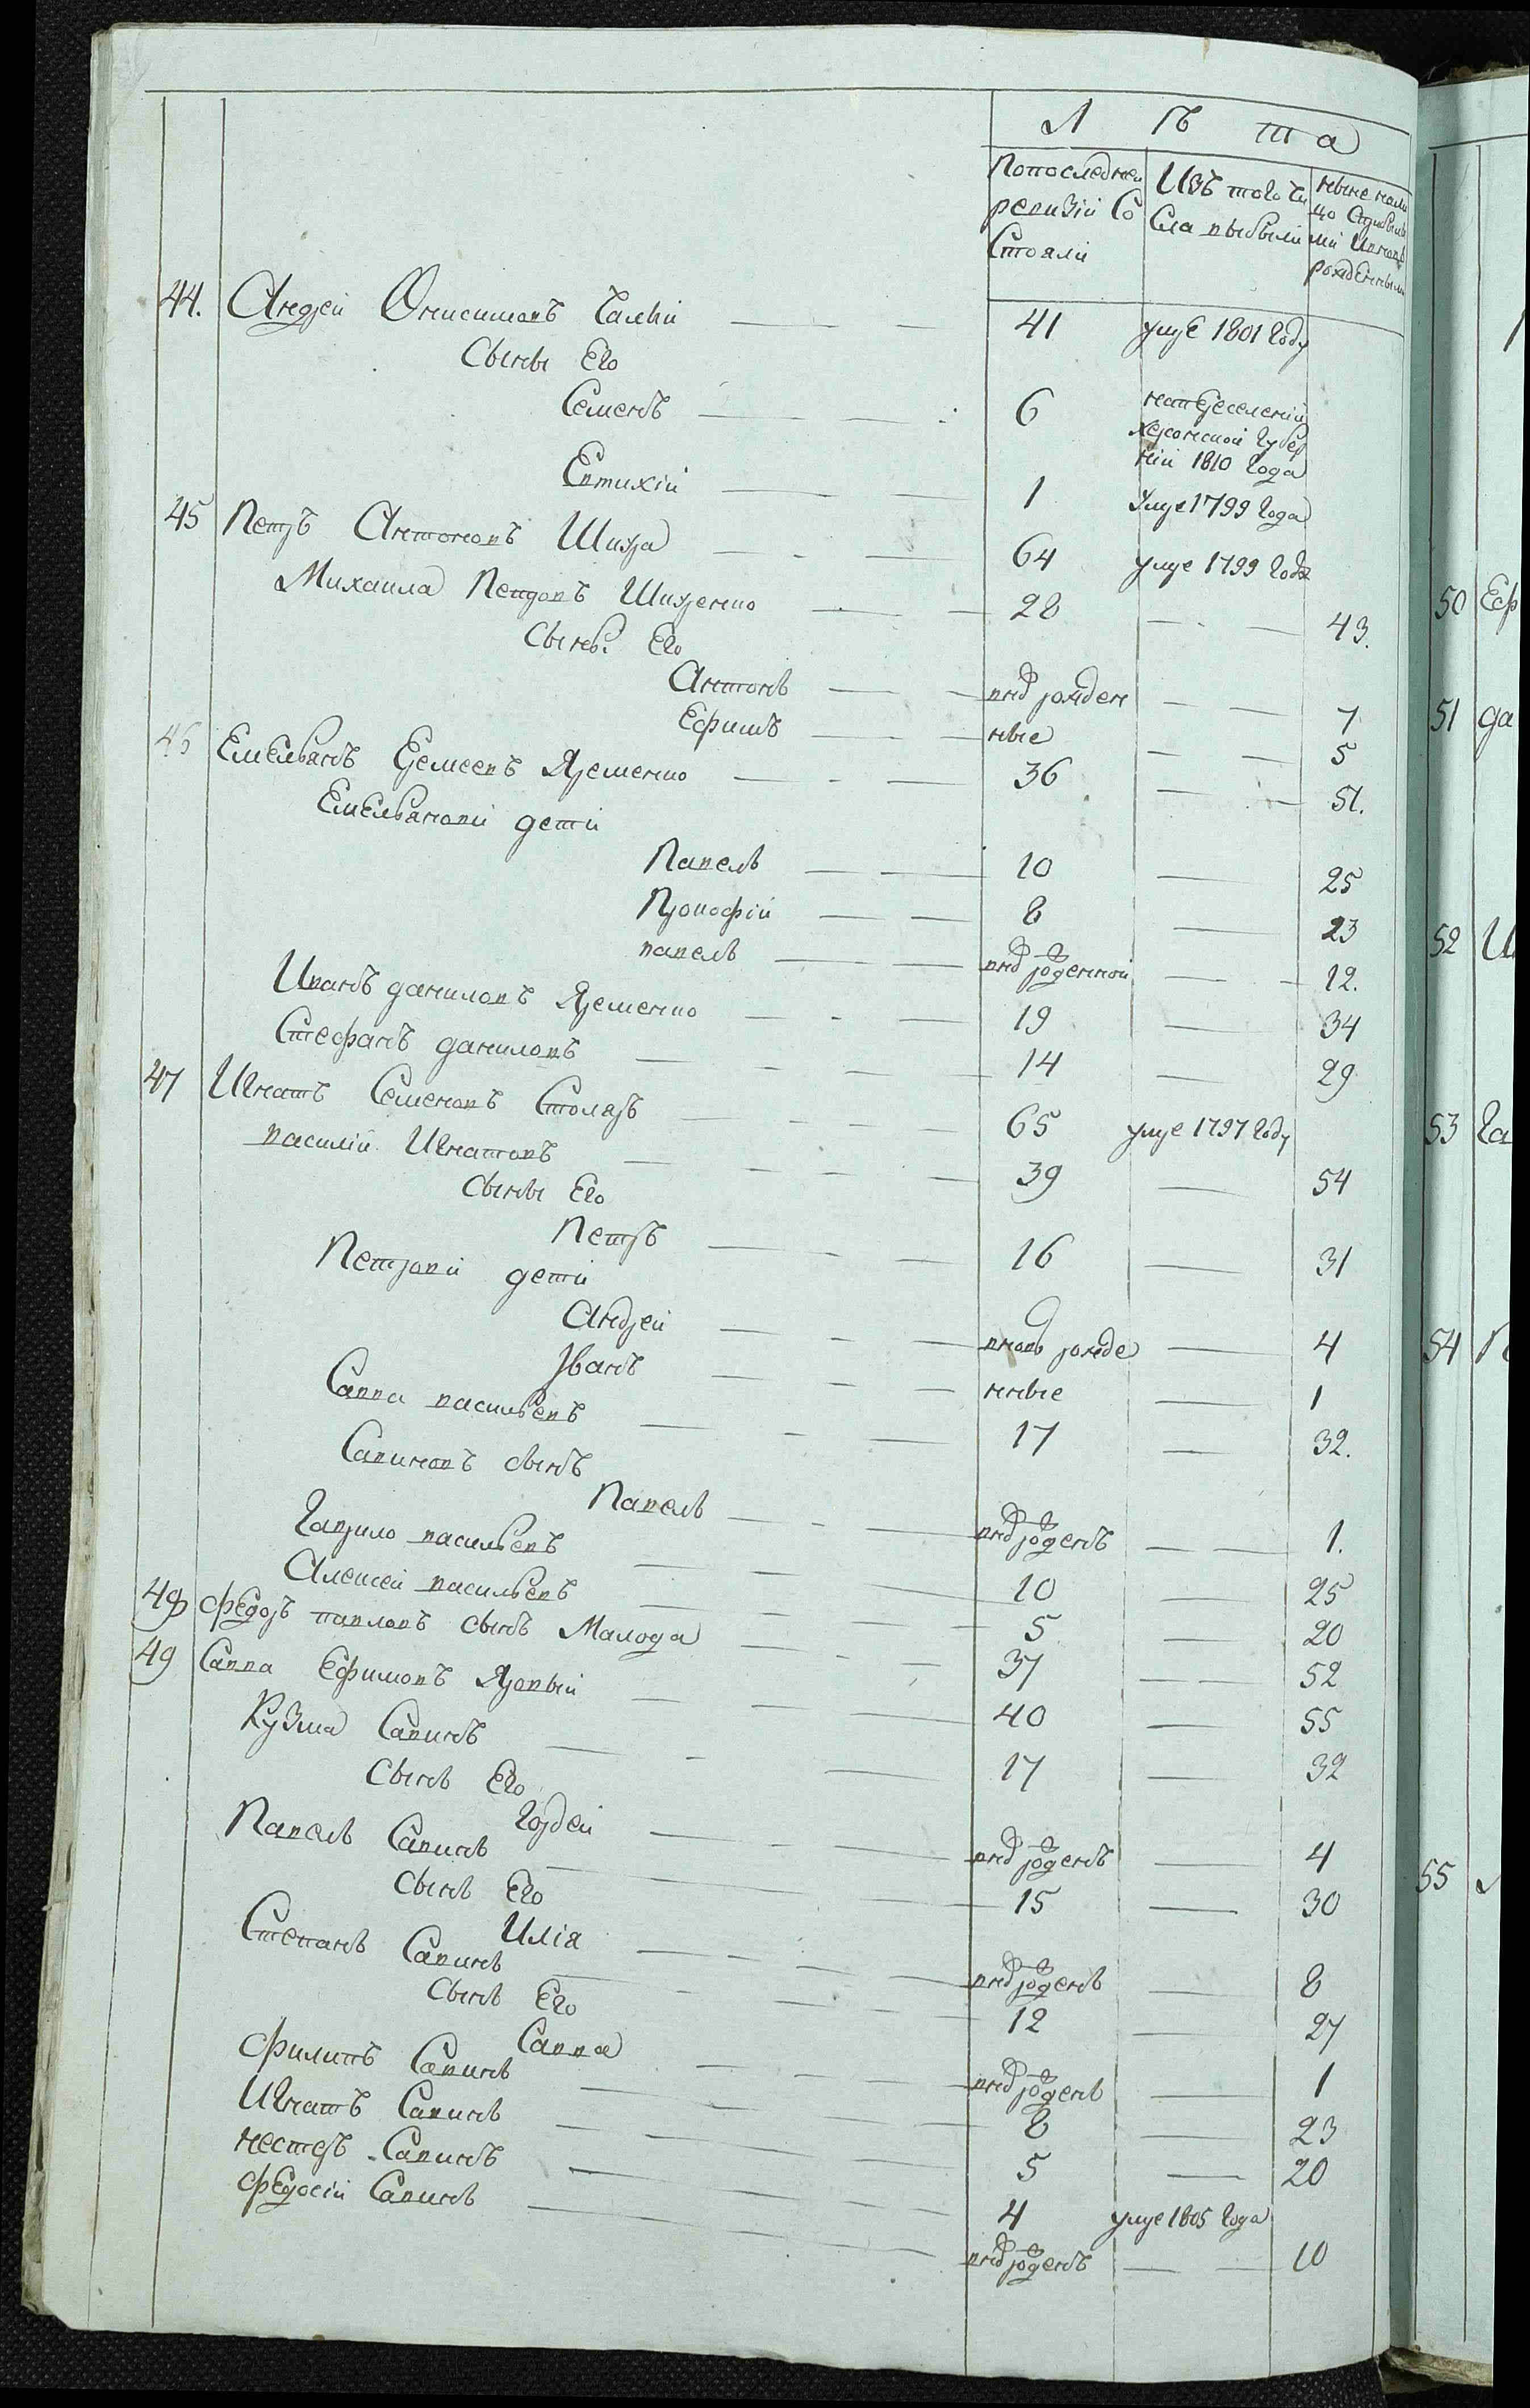 Л ѣ та
Попоследней ревизіи Состояли
Изъ того числа выбыли
Ныне налицо
44. Андрей Онисимовъ 41 умре 1801 году
Сыны Его
Семенъ 6 на переселеніи херсонской губерніи 1810 года
Евтихій 1 Умре 1799 года
45 Петръ Антоновъ Шкура 64 умре 1799 года
Михаила Петровъ 28 43.
Сынъ Его
Антонъ вновъ рожден 7
Ефимъ ные 5
46 Емельянъ Еремеевъ Яременко 36 51.
Емельяновы дети
Павелъ 10 25
Прокофій 8 23
павелъ вновъ роденной 12.
Иванъ даниловъ Яременко 19 34
Стефанъ даниловъ 14 29
47 Игнатъ Семеновъ Столяръ 65 умре 1797 году
василій Игнатовъ 39 54
Сыны Его
Петръ 16 31
Петровы дети
Андрей вновь рожде 4
Іванъ нные 1
Савва васильевъ 17 32.
Савиновъ сынъ
Павелъ вновъ роденъ 1.
Гаврило васильевъ 10 25
Алексей васильевъ 5 20
48 федоръ павловъ сынъ Малода 37 52
49 Савва Ефимовъ Яровый 40 55
Кузма Савинъ 17 32
Сынъ Его
Гордей вновъ роденъ 4
Павелъ Савинъ 15 30
Сынъ Его
Илія вновъ роденъ 8
Степанъ Савинъ 12 27
Сынъ Его
Савва вновъ роденъ 1
филипъ Савинъ 8 23
Игнатъ Савинъ 5 20
нестеръ Савинъ 4 умре 1805 года
федосій Савинъ вновъ роденъ 10
50 Еф
51 да
52 И
53 Га
54 П
55